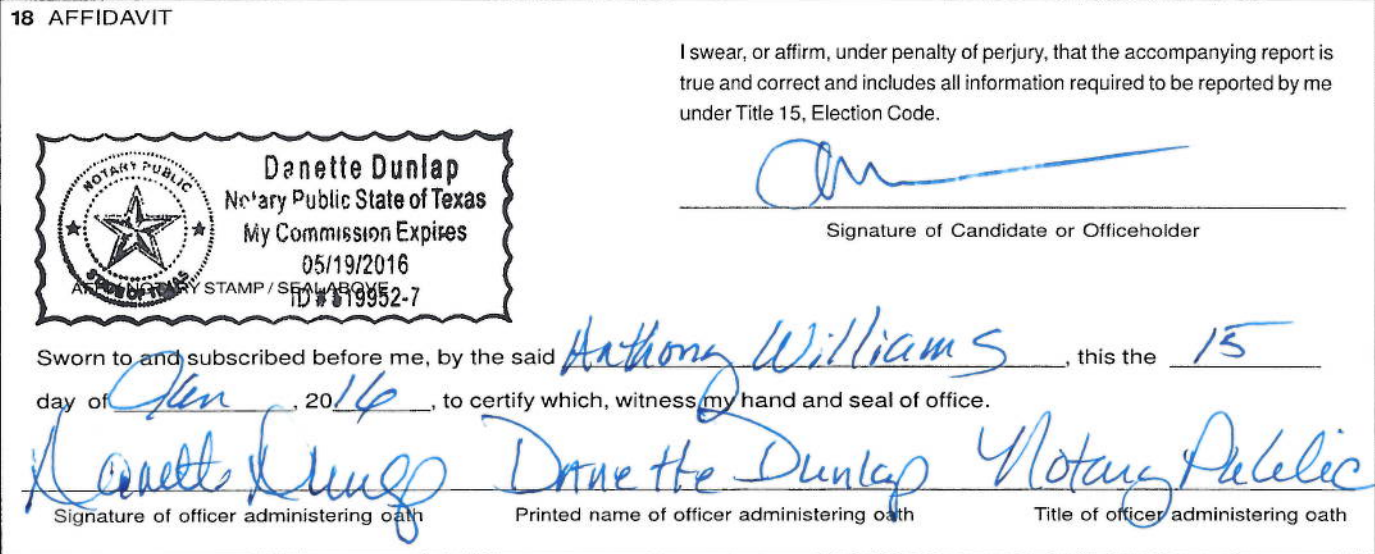 18 AFFIDAVIT
I swear, or affirm, under penalty of perjury, that the accompanying report is
true and correct and includes all information required to be reported by me
under Title 15, Election Code.
NOTARY PUBLIC
STATE OF TEXAS
Danette Dunlap
Notary Public State of Texas
My Commission Expires
05/19/2016
ID # 19952-7
STAMP / SEAL ABOVE
Signature of Candidate or Officeholder
Sworn to and subscribed before me, by the said Anthony Williams, this the 15
day of Jan, 2016, to certify which, witness my hand and seal of office.
Danette Dunlap Danette Dunlap Notary Public
Signature of officer administering oath Printed name of officer administering oath Title of officer administering oath